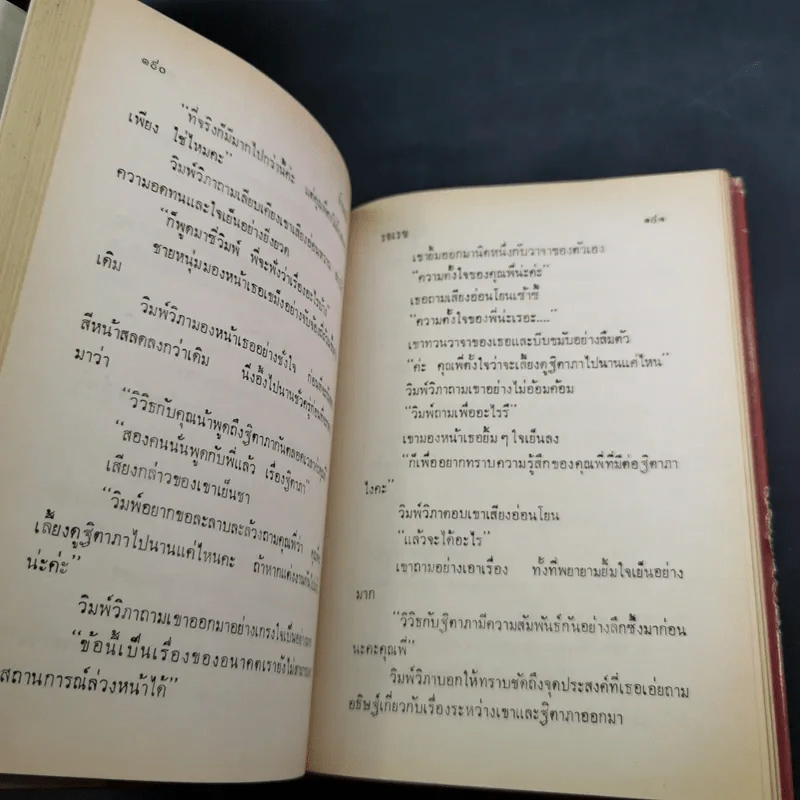 ๑๙๐
“ที่จริงก็มีมากไปกว่านี้ค่ะ
เพียง ใช่ไหมคะ”
วิมพ์วิภาถามเลียบเคียงเขาเสียงอ่อนหวาน
ความอดทนและใจเย็นอย่างยิ่งยวด
“ก็พูดมาซี่วิมพ์ พี่จะฟังว่าเรื่องอะไรบ้าง”
ชายหนุ่มมองหน้าเธอเขม็งอย่างจับจ้อง
เดิม
วิมพ์วิภามองหน้าเธออย่างชั่งใจ ก่อน
สีหน้าสลดลงกว่าเดิม นึ่งอึ้งไปนานชั่วครู่ก่อน
มาว่า
“วิวิธกับคุณน้าพูดถึงฐิตาภากันตลอดเวลา
“สองคนนั่นพูดกับพี่แล้ว เรื่องฐิตาภา”
เสียงกล่าวของเขาเย็นชา
“วิมพ์อยากขอละลาบละล้วงถามคุณพี่ว่า
เลี้ยงดูฐิตาภาไปนานแค่ไหนคะ ถ้าหากแต่งงานกัน
น่ะค่ะ”
วิมพ์วิภาถามเขาออกมาอย่างเกรงใจเป็นอย่างมาก
“ข้อนี้เป็นเรื่องของอนาคตเรายังไม่สามารถ
สถานการณ์ล่วงหน้าได้”
รอเรข ๑๙๑
เขายิ้มออกมานิดหนึ่งกับวาจาของตัวเอง
“ความตั้งใจของคุณพี่น่ะค่ะ”
เธอถามเสียงอ่อนโยนเซ้าซี้
“ความตั้งใจของพี่น่ะเรอะ....”
เขาทวนวาจาของเธอและบีบขมับอย่างลืมตัว
“ค่ะ คุณพี่ตั้งใจว่าจะเลี้ยงดูฐิตาภาไปนานแค่ไหน”
วิมพ์วิภาถามเขาอย่างไม่อ้อมค้อม
“วิมพ์ถามเพื่ออะไรรึ”
เขามองหน้าเธอยิ้ม ๆ ใจเย็นลง
“ก็เพื่ออยากทราบความรู้สึกของคุณพี่ที่มีต่อฐิตาภา
ไงคะ”
วิมพ์วิภาตอบเขาเสียงอ่อนโยน
“แล้วจะได้อะไร”
เขาถามอย่างเอาเรื่อง ทั้งที่พยายามยิ้มใจเย็นอย่าง
มาก
“วิวิธกับฐิตาภามีความสัมพันธ์กันอย่างลึกซึ้งมาก่อน
นะคะคุณพี่”
วิมพ์วิภาบอกให้ทราบชัดถึงจุดประสงค์ที่เธอเอ่ยถาม
อธิษฐ์เกี่ยวกับเรื่องระหว่างเขาและฐิตาภาออกมา